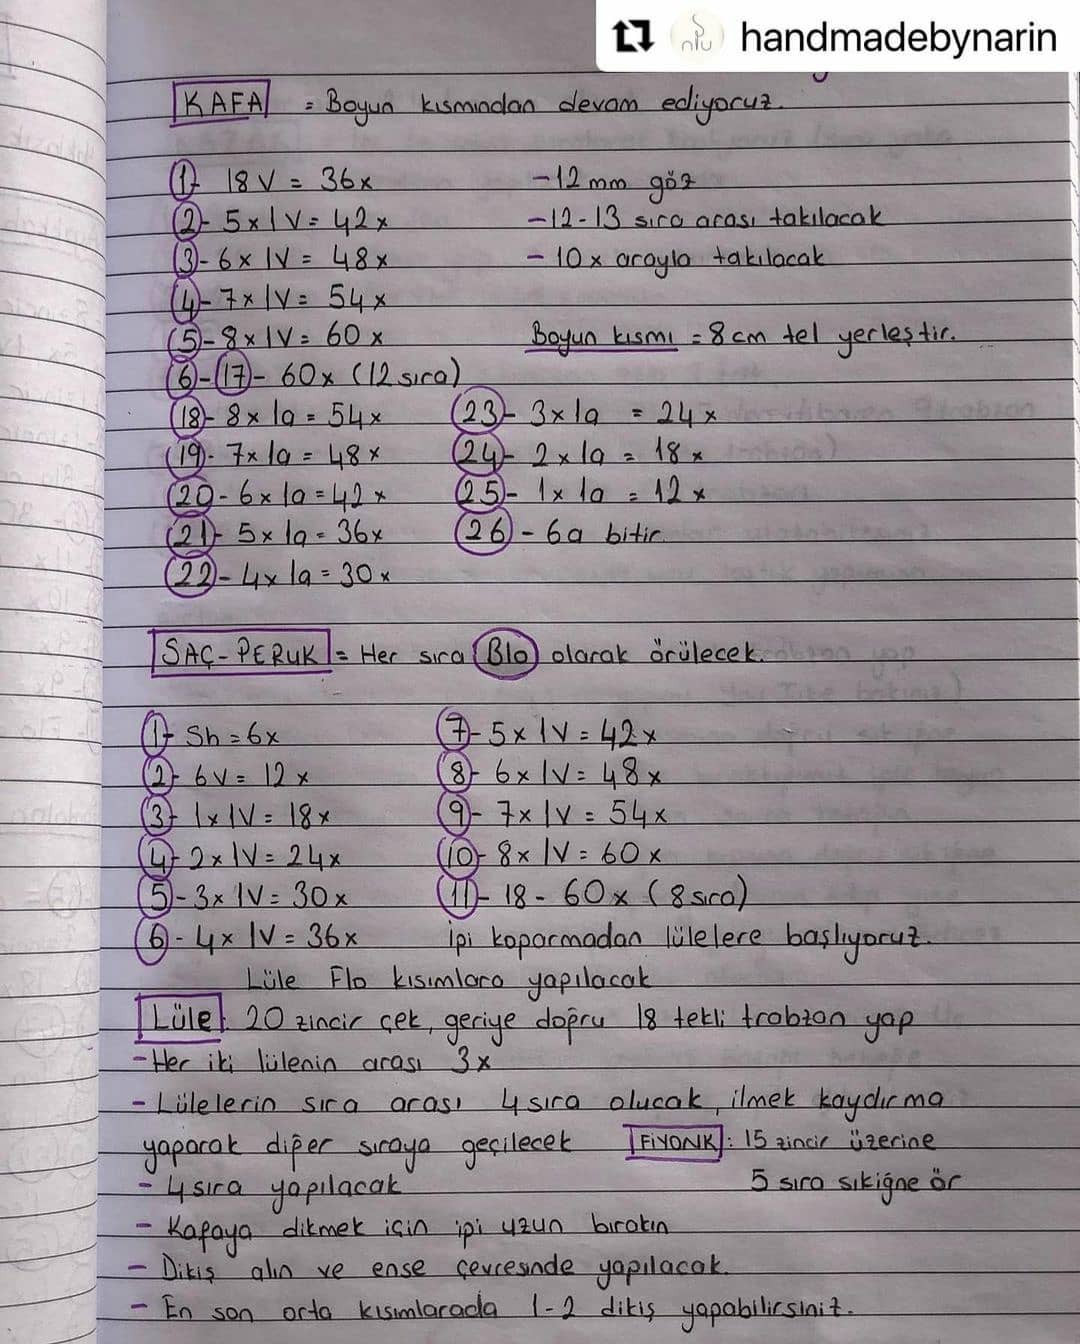 handmadebynarin
KAFA = Boyun kısmından devam ediyoruz.
1- 18V = 36x
2- 5x1V= 42x
3- 6x1V = 48x
4- 7x1V= 54x
5- 8x1V= 60x
6-17- 60x (12 sıra)
18- 8x1a = 54x
19- 7x1a = 48x
20- 6x1a = 42x
21- 5x1a = 36x
22- 4x1a = 30x
-12mm göz
-12-13 sıra arası takılacak
- 10x arayla takılacak
Boyun kısmı = 8cm tel yerleştir.
23- 3x1a = 24x
24- 2x1a = 18x
25- 1x1a = 12x
26- 6a bitir.
SAÇ-PERUK = Her sıra Blo olarak örülecek.
1- Sh = 6x
2- 6V = 12x
3- 1x1V = 18x
4- 2x1V = 24x
5- 3x1V = 30x
6- 4x1V = 36x
7- 5x1V = 42x
8- 6x1V = 48x
9- 7x1V = 54x
10- 8x1V = 60x
11- 18- 60x (8 sıra)
İpi koparmadan lülelere başlıyoruz.
Lüle Flo kısımlara yapılacak
Lüle: 20 zincir çek, geriye doğru 18 tekli trabzan yap
- Her iki lülenin arası 3x
- Lülelerin sıra arası 4 sıra olucak, ilmek kaydırma
yaparak diğer sıraya geçilecek
- 4 sıra yapılacak
FİYONK: 15 zincir üzerine
5 sıra sıkiğne ör
- Kafaya dikmek için ipi uzun bırakın
- Dikiş alın ve ense çevresinde yapılacak.
- En son orta kısımlarada 1-2 dikiş yapabilirsiniz.